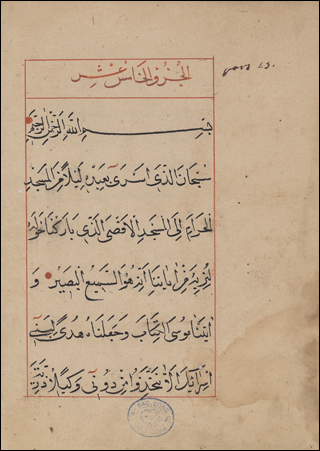 الجزؤ الخامس عشر
بسم الله الرحمن الرحيم
سبحان الذي اسرى بعبده ليلا من المسجد
الحرام الى المسجد الاقصى الذي باركنا حوله
لنريه من اياتنا انه هو السميع البصير و
اتينا موسى الكتاب وجعلناه هدى لبني
اسرائيل الا تتخذوا من دوني وكيلا ذرية